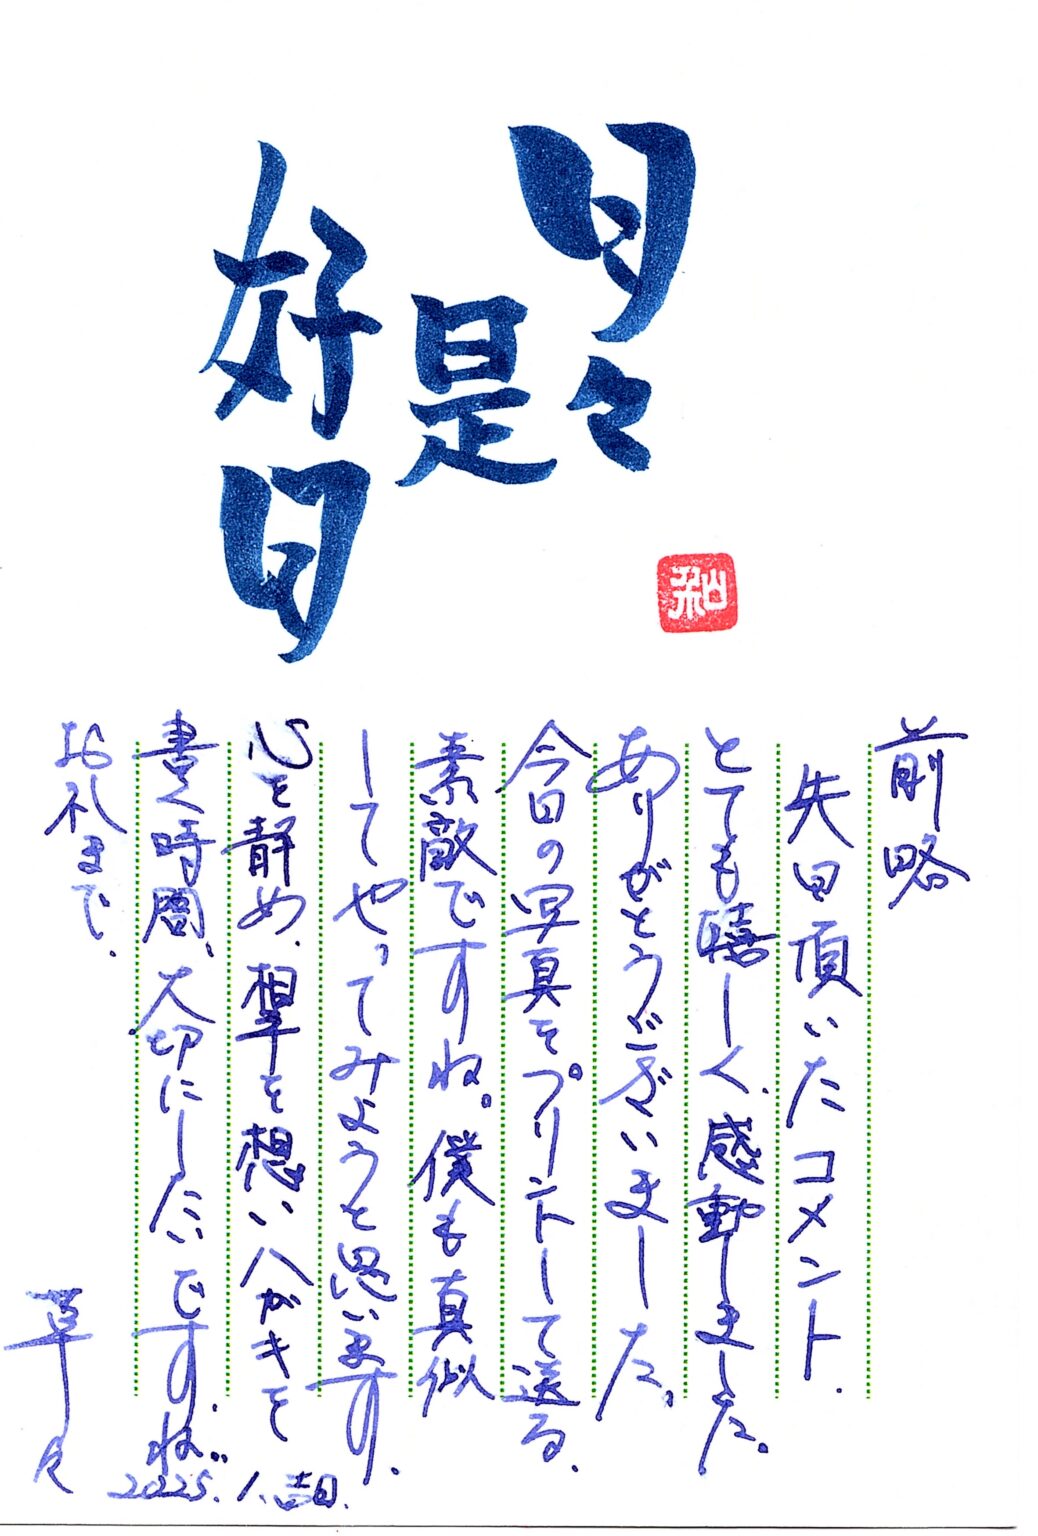 日々
是
好日
和
前略
先日頂いたコメント、
とても嬉しく、感動しました。
ありがとうございました。
今日の写真をプリントして送る、
素敵ですね。僕も真似
してやってみようと思います。
心を静め、相手を想いハガキを
書く時間、大切にしたいですね。
お礼まで、
草々
2025.1.吉日.